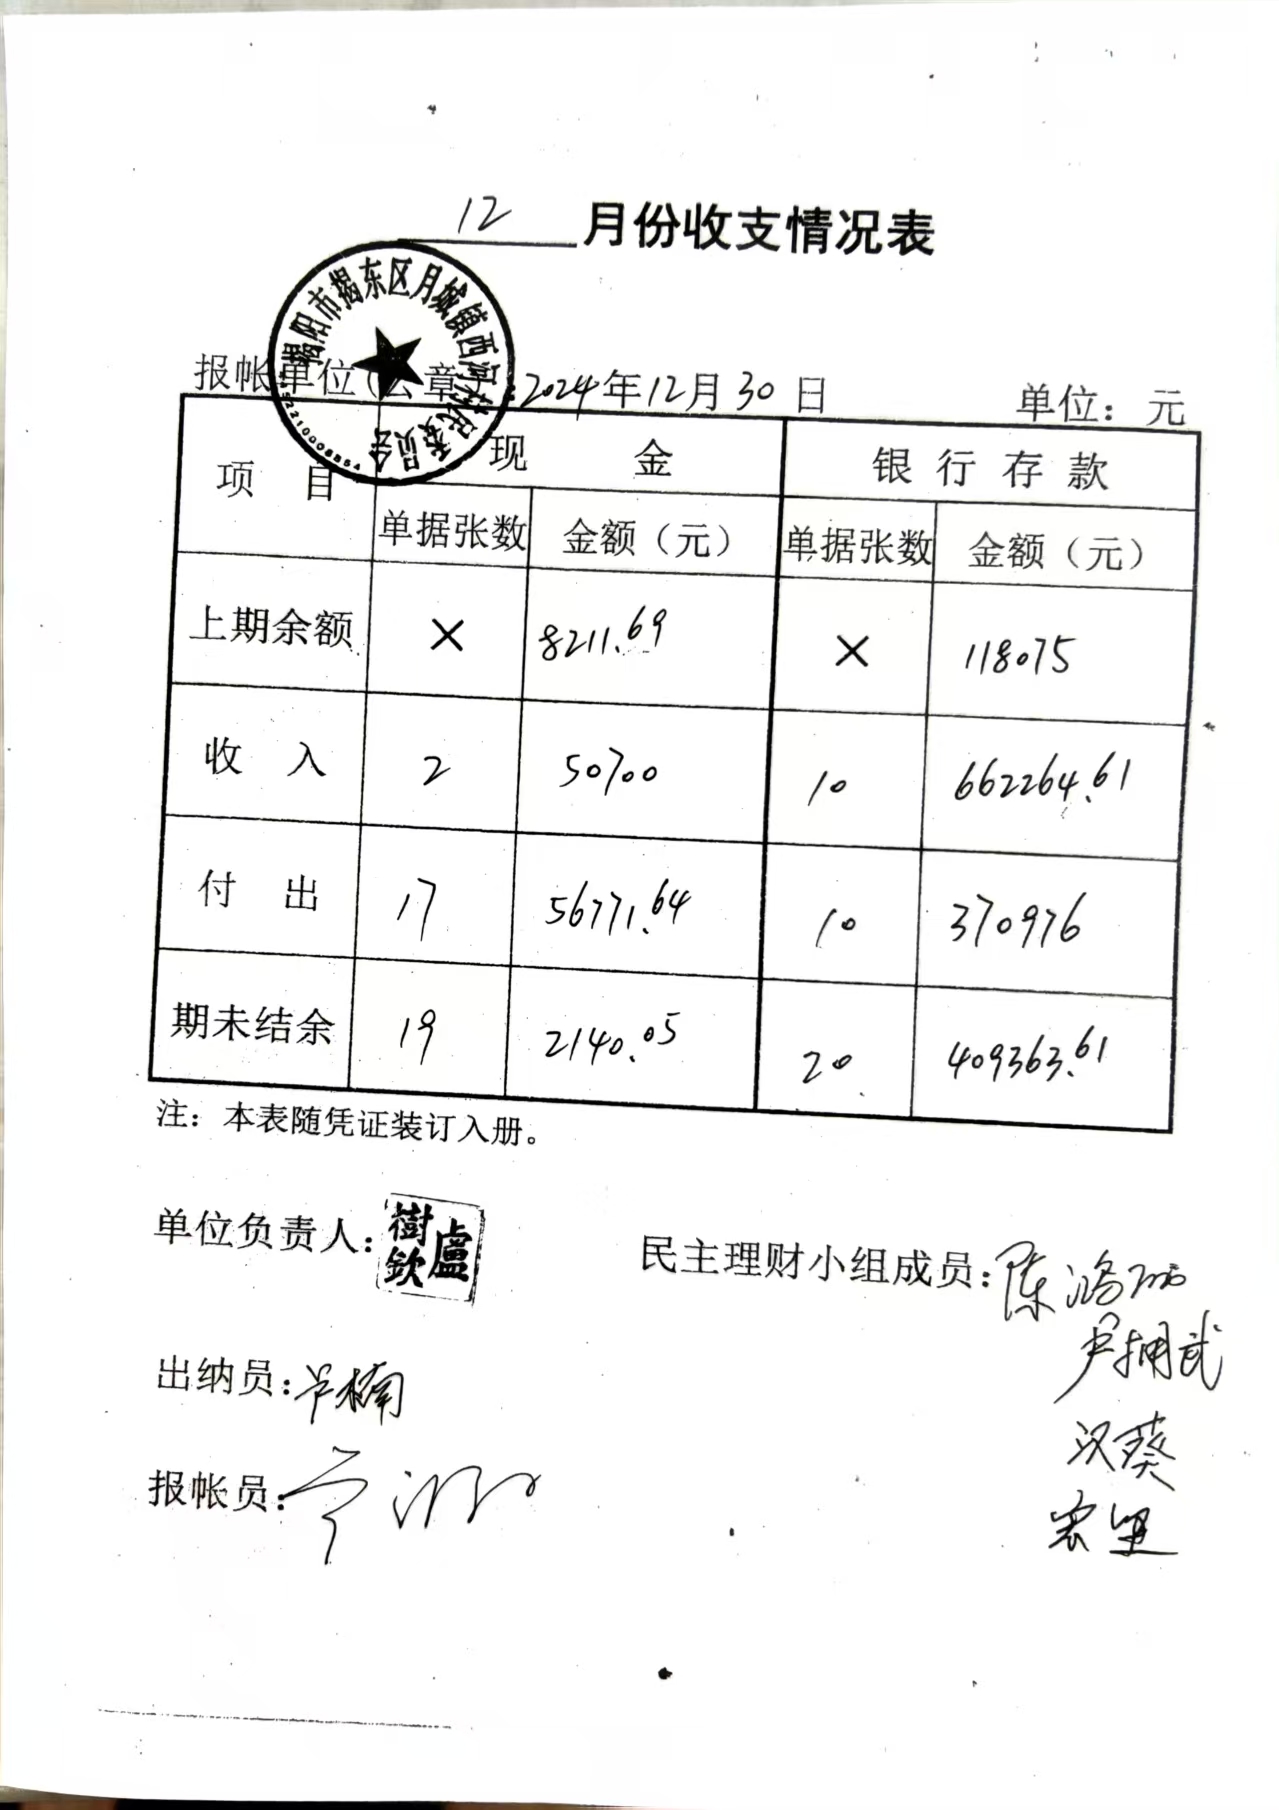 12 月份收支情况表
揭阳市揭东区月城镇西河村民委员会
报帐单位(公章): 2024年12月30日 单位：元
项 目 现 金 银行存款
单据张数 金额（元） 单据张数 金额（元）
上期余额 × 8211.69 × 118075
收 入 2 50700 10 662264.61
付 出 17 56771.64 10 370976
期未结余 19 2140.05 20 409363.61
注：本表随凭证装订入册。
单位负责人: 盧樹欽
民主理财小组成员: 陈鸿
出纳员: 卢楠
汉葵
报帐员: